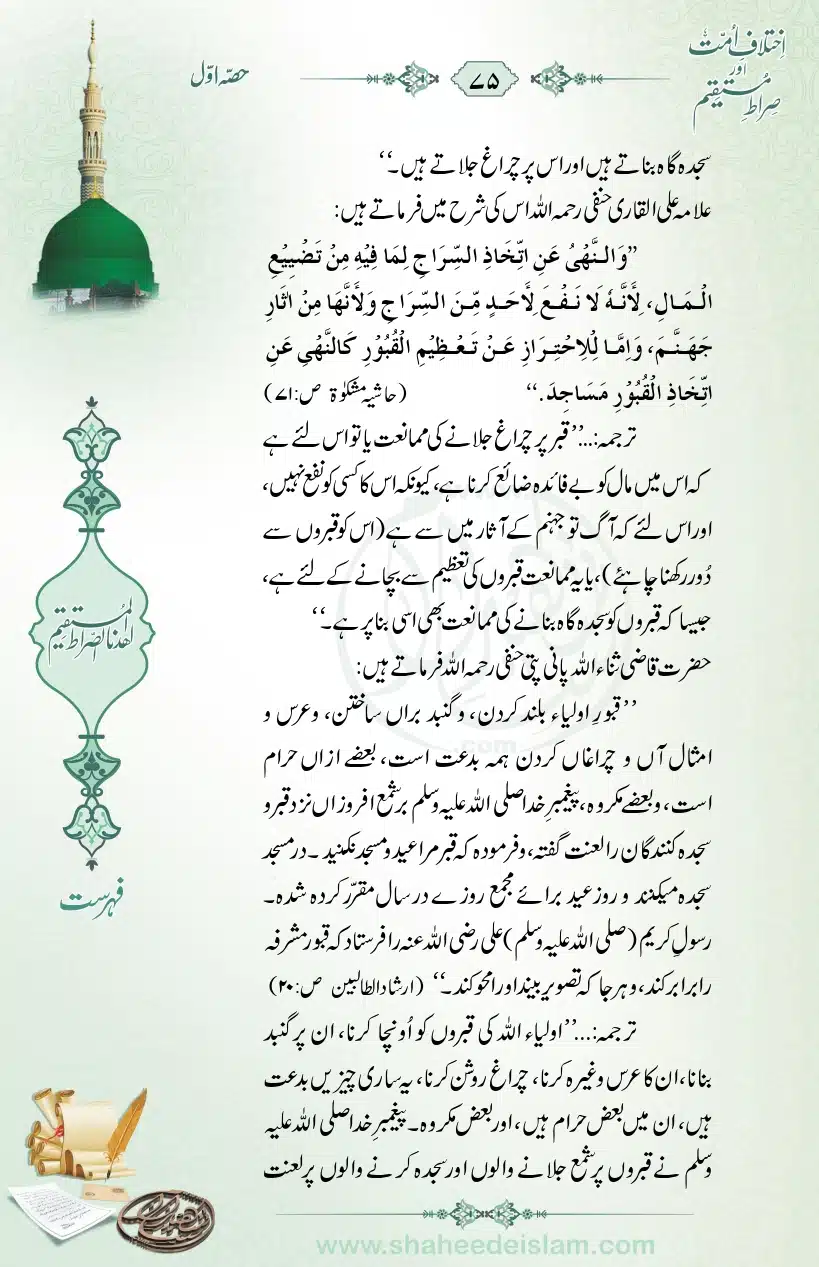 اِختلافِ اُمّت
اور
صراطِ مُستقیم
۷۵
حصّہ اوّل
سجدہ گاہ بناتے ہیں اور اس پر چراغ جلاتے ہیں۔‘‘
علامہ علی القاری حنفی رحمہ اللہ اس کی شرح میں فرماتے ہیں:
”وَالنَّهْیُ عَنِ اتِّخَاذِ السِّرَاجِ لِمَا فِیْهِ مِنْ تَضْیِیْعِ
الْمَالِ، لِأَنَّهٗ لَا نَفْعَ لِأَحَدٍ مِّنَ السِّرَاجِ وَلِأَنَّهَا مِنْ اٰثَارِ
جَهَنَّمَ، وَاِمَّا لِلْاِحْتِرَازِ عَنْ تَعْظِیْمِ الْقُبُوْرِ كَالنَّهْیِ عَنِ
اتِّخَاذِ الْقُبُوْرِ مَسَاجِدَ.‘‘ (حاشیہ مشکوٰۃ ص:۷۱)
ترجمہ:…’’قبر پر چراغ جلانے کی ممانعت یا تو اس لئے ہے
کہ اس میں مال کو بے فائدہ ضائع کرنا ہے، کیونکہ اس کا کسی کو نفع نہیں،
اور اس لئے کہ آگ تو جہنم کے آثار میں سے ہے (اس کو قبروں سے
دُور رکھنا چاہئے)، یا یہ ممانعت قبروں کی تعظیم سے بچانے کے لئے ہے،
جیسا کہ قبروں کو سجدہ گاہ بنانے کی ممانعت بھی اسی بنا پر ہے۔‘‘
حضرت قاضی ثناء اللہ پانی پتی حنفی رحمہ اللہ فرماتے ہیں:
’’قبورِ اولیاء بلند کردن، و گنبد براں ساختن، و عرس و
امثال آں و چراغاں کردن ہمہ بدعت است، بعضے ازاں حرام
است، و بعضے مکروہ، پیغمبرِ خدا صلی اللہ علیہ وسلم بر شمع افروزاں نزد قبر و
سجدہ کنندگان را لعنت گفتہ، و فرمودہ کہ قبر مرا عید و مسجد نکنید۔ در مسجد
سجدہ میکنند و روز عید برائے مجمع روزے در سال مقرّر کردہ شدہ۔
رسولِ کریم (صلی اللہ علیہ وسلم) علی رضی اللہ عنہ را فرستاد کہ قبور مشرفہ
را برابر کند، و ہر جا کہ تصویر بیند او را محو کند۔‘‘ (ارشاد الطالبین ص:۲۰)
ترجمہ:…’’اولیاء اللہ کی قبروں کو اُونچا کرنا، ان پر گنبد
بنانا، ان کا عرس وغیرہ کرنا، چراغ روشن کرنا، یہ ساری چیزیں بدعت
ہیں، ان میں بعض حرام ہیں، اور بعض مکروہ۔ پیغمبرِ خدا صلی اللہ علیہ
وسلم نے قبروں پر شمع جلانے والوں اور سجدہ کرنے والوں پر لعنت
اھدنا الصّراط المُستقیم
فہرست
www.shaheedeislam.com